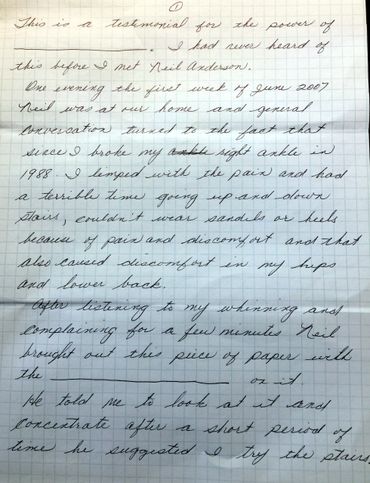 1
This is a testimonial for the power of
____________. I had never heard of
this before I met Neil Anderson.
One evening the first week of June 2007
Neil was at our home and general
conversation turned to the fact that
since I broke my ankle right ankle in
1988. I lemped with the pain and had
a terrible time going up and down
stairs, couldn't wear sandels or heels
because of pain and discomfort and that
also caused discomfort in my hips
and lower back.
After listening to my whinning and
complaining for a few minutes Neil
brought out this piece of paper with
the ____________ on it.
He told me to look at it and
concentrate after a short period of
time he suggested I try the stairs.